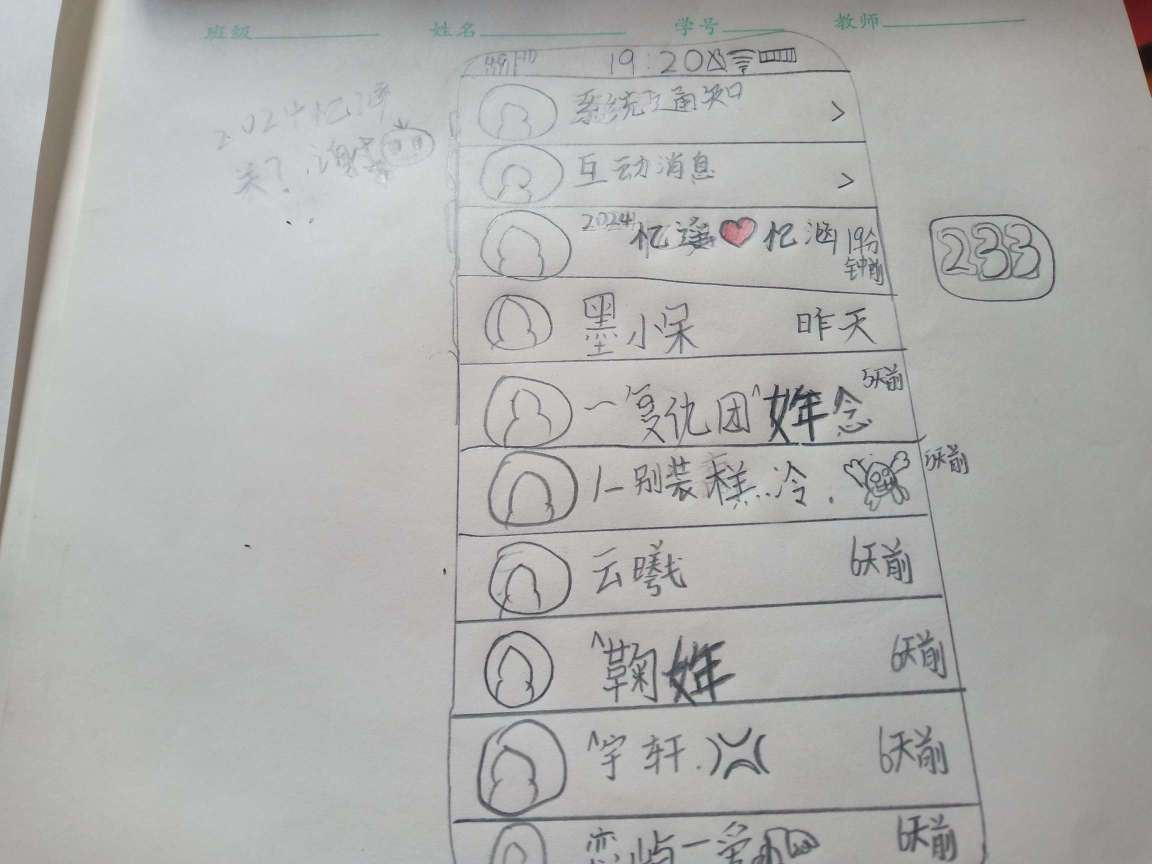 班级 姓名 学号 教师
19:20
系统通知 >
互动消息 >
2024 忆遥❤忆涵 19分钟前
233
墨小呆 昨天
一复仇团^ 念 5天前
别装糕..冷. 5天前
云曦 6天前
^鞠 6天前
^宇轩. 6天前
恋屿一 6天前